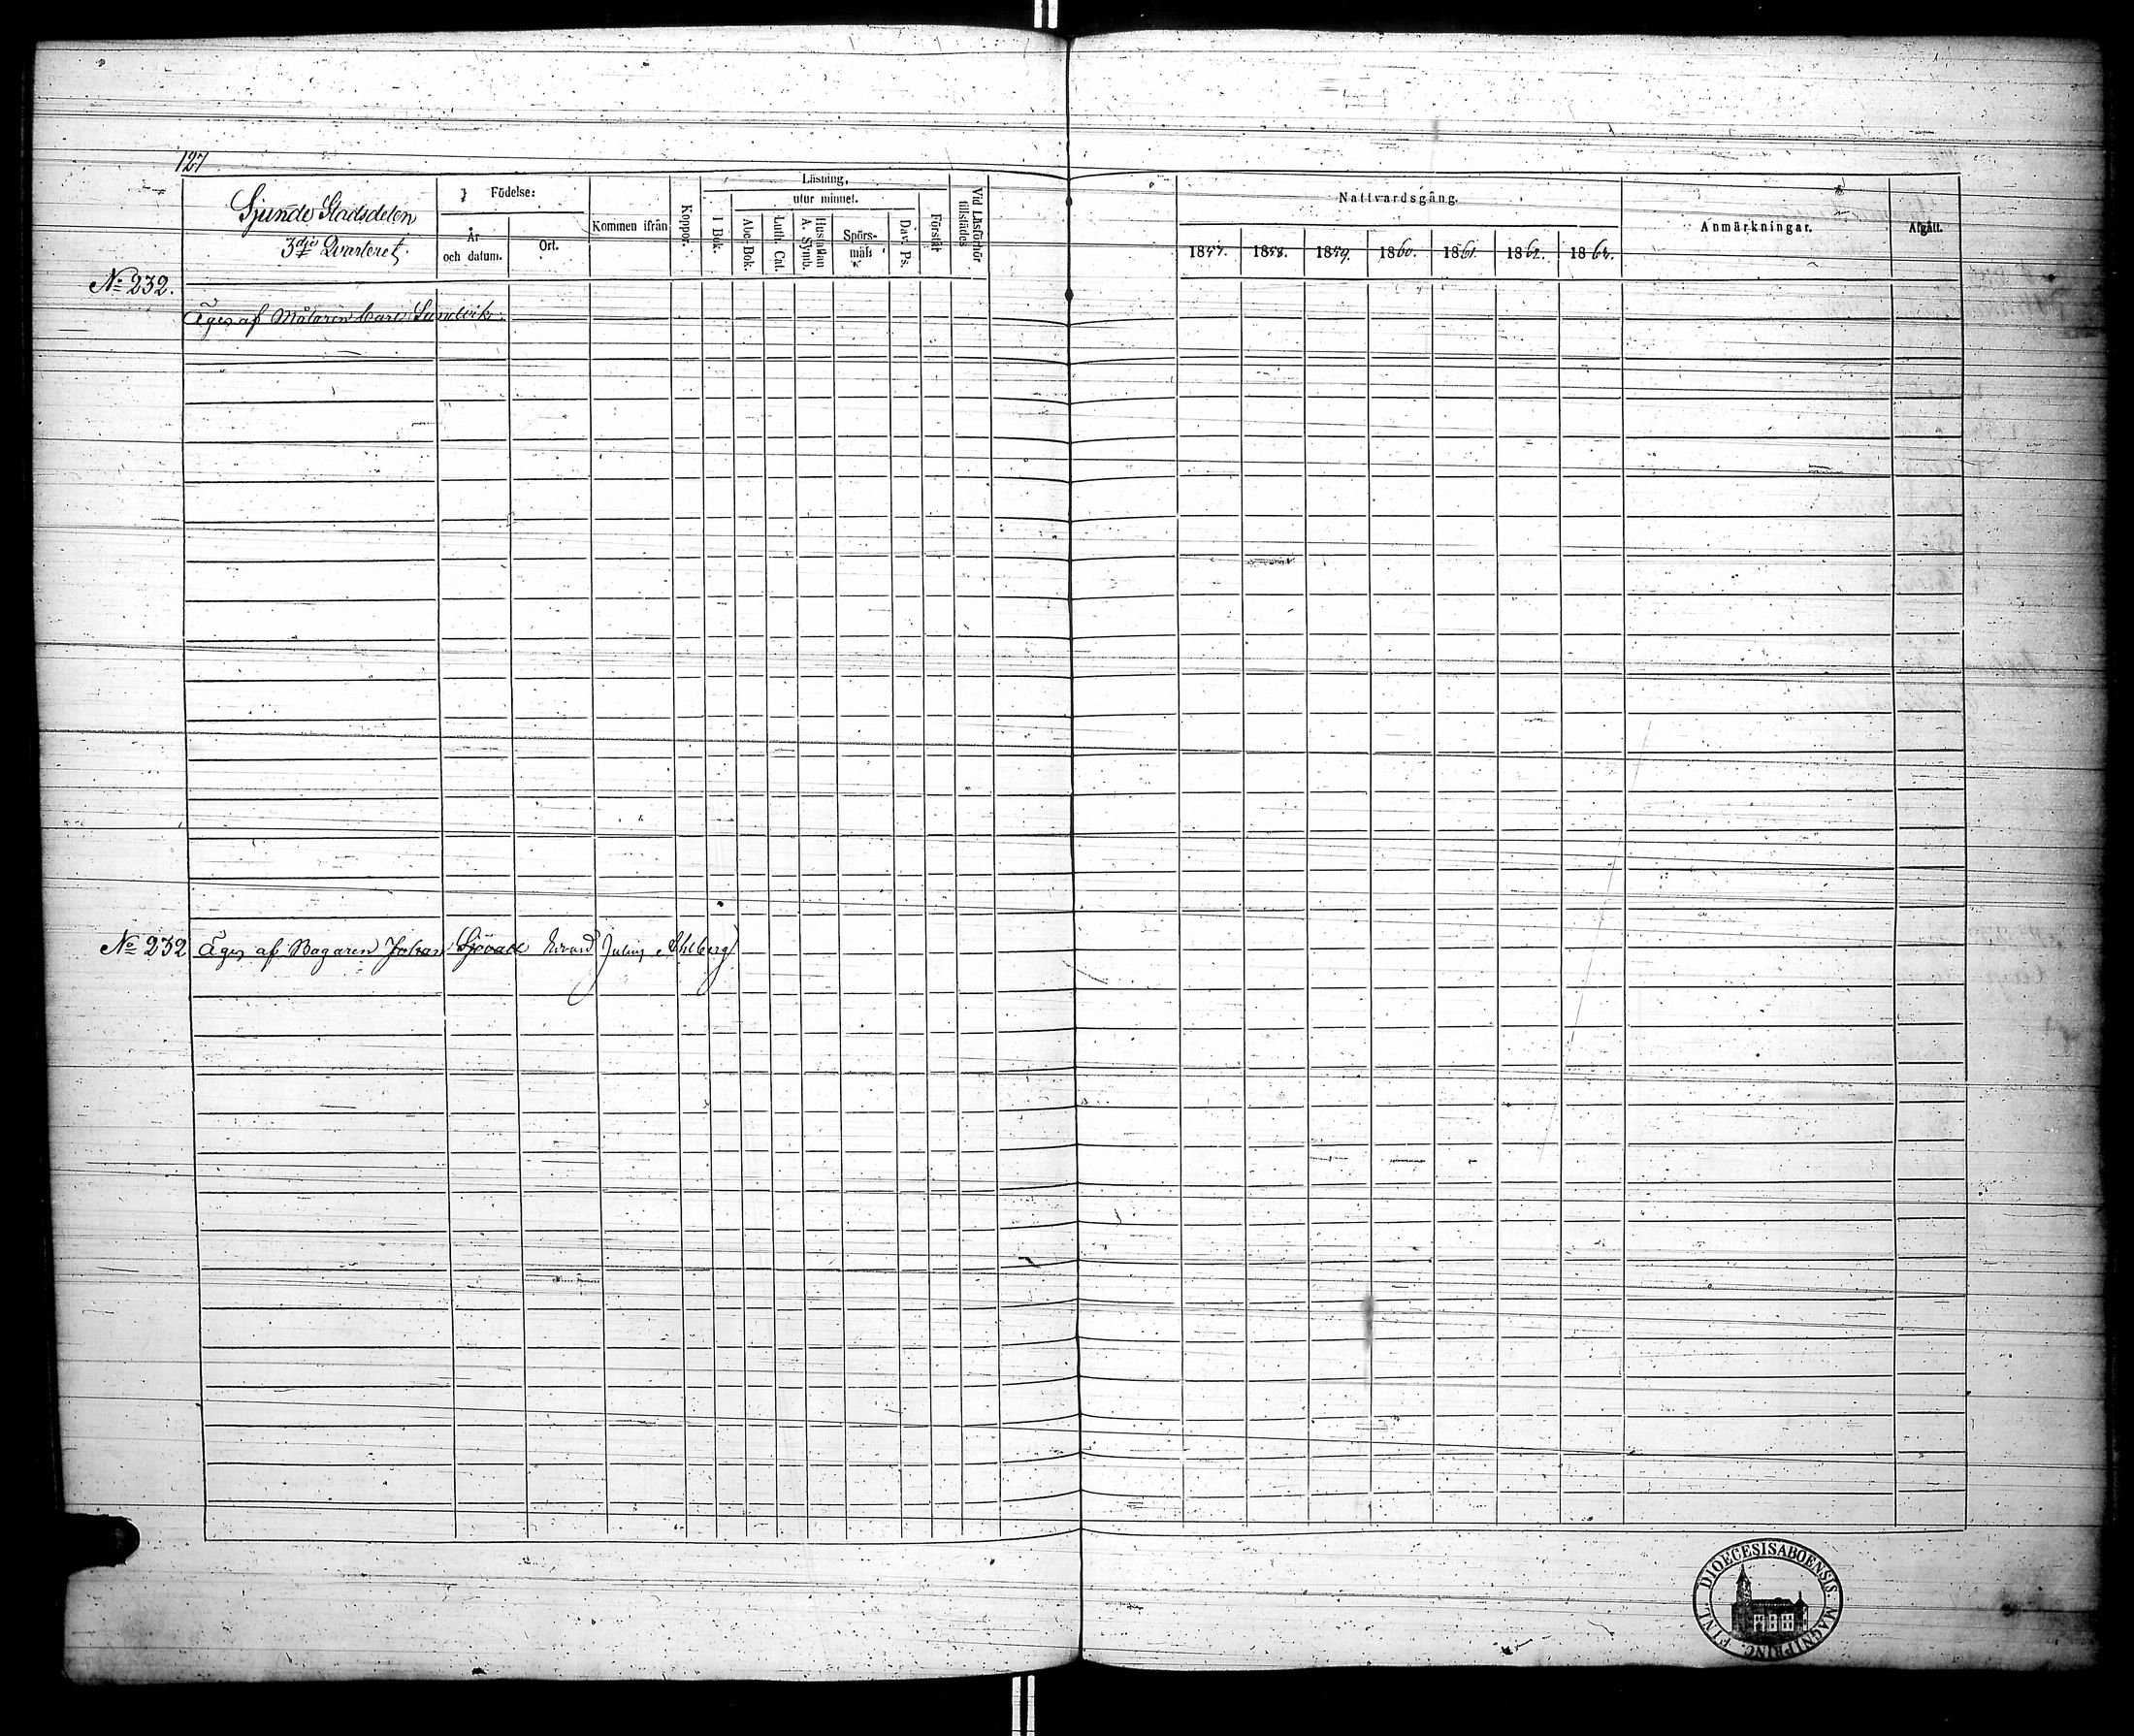 127
Sjunde Stadsdelen
3dje Qvarteret.
Födelse:
År och datum.
Ort.
Kommen ifrån
Koppor.
Läsning,
I Bok.
utur minnet.
Abc-Bok.
Luth. Cat.
Hustaflan A. Symb.
Spörsmål.
Dav. Ps.
Förstår
Vid Läsförhör tillstädes
Nattvardsgång.
1857.
1858.
1859.
1860.
1861.
1862.
1863.
Anmärkningar.
Afgått.
No 232.
Äges af Målaren Carl Sundvik.
No 232 Äges af Bagaren Johan Edvard Julius Ahlberg
DIOECESIS ABOENSIS MAGNI PRINC. FINL.